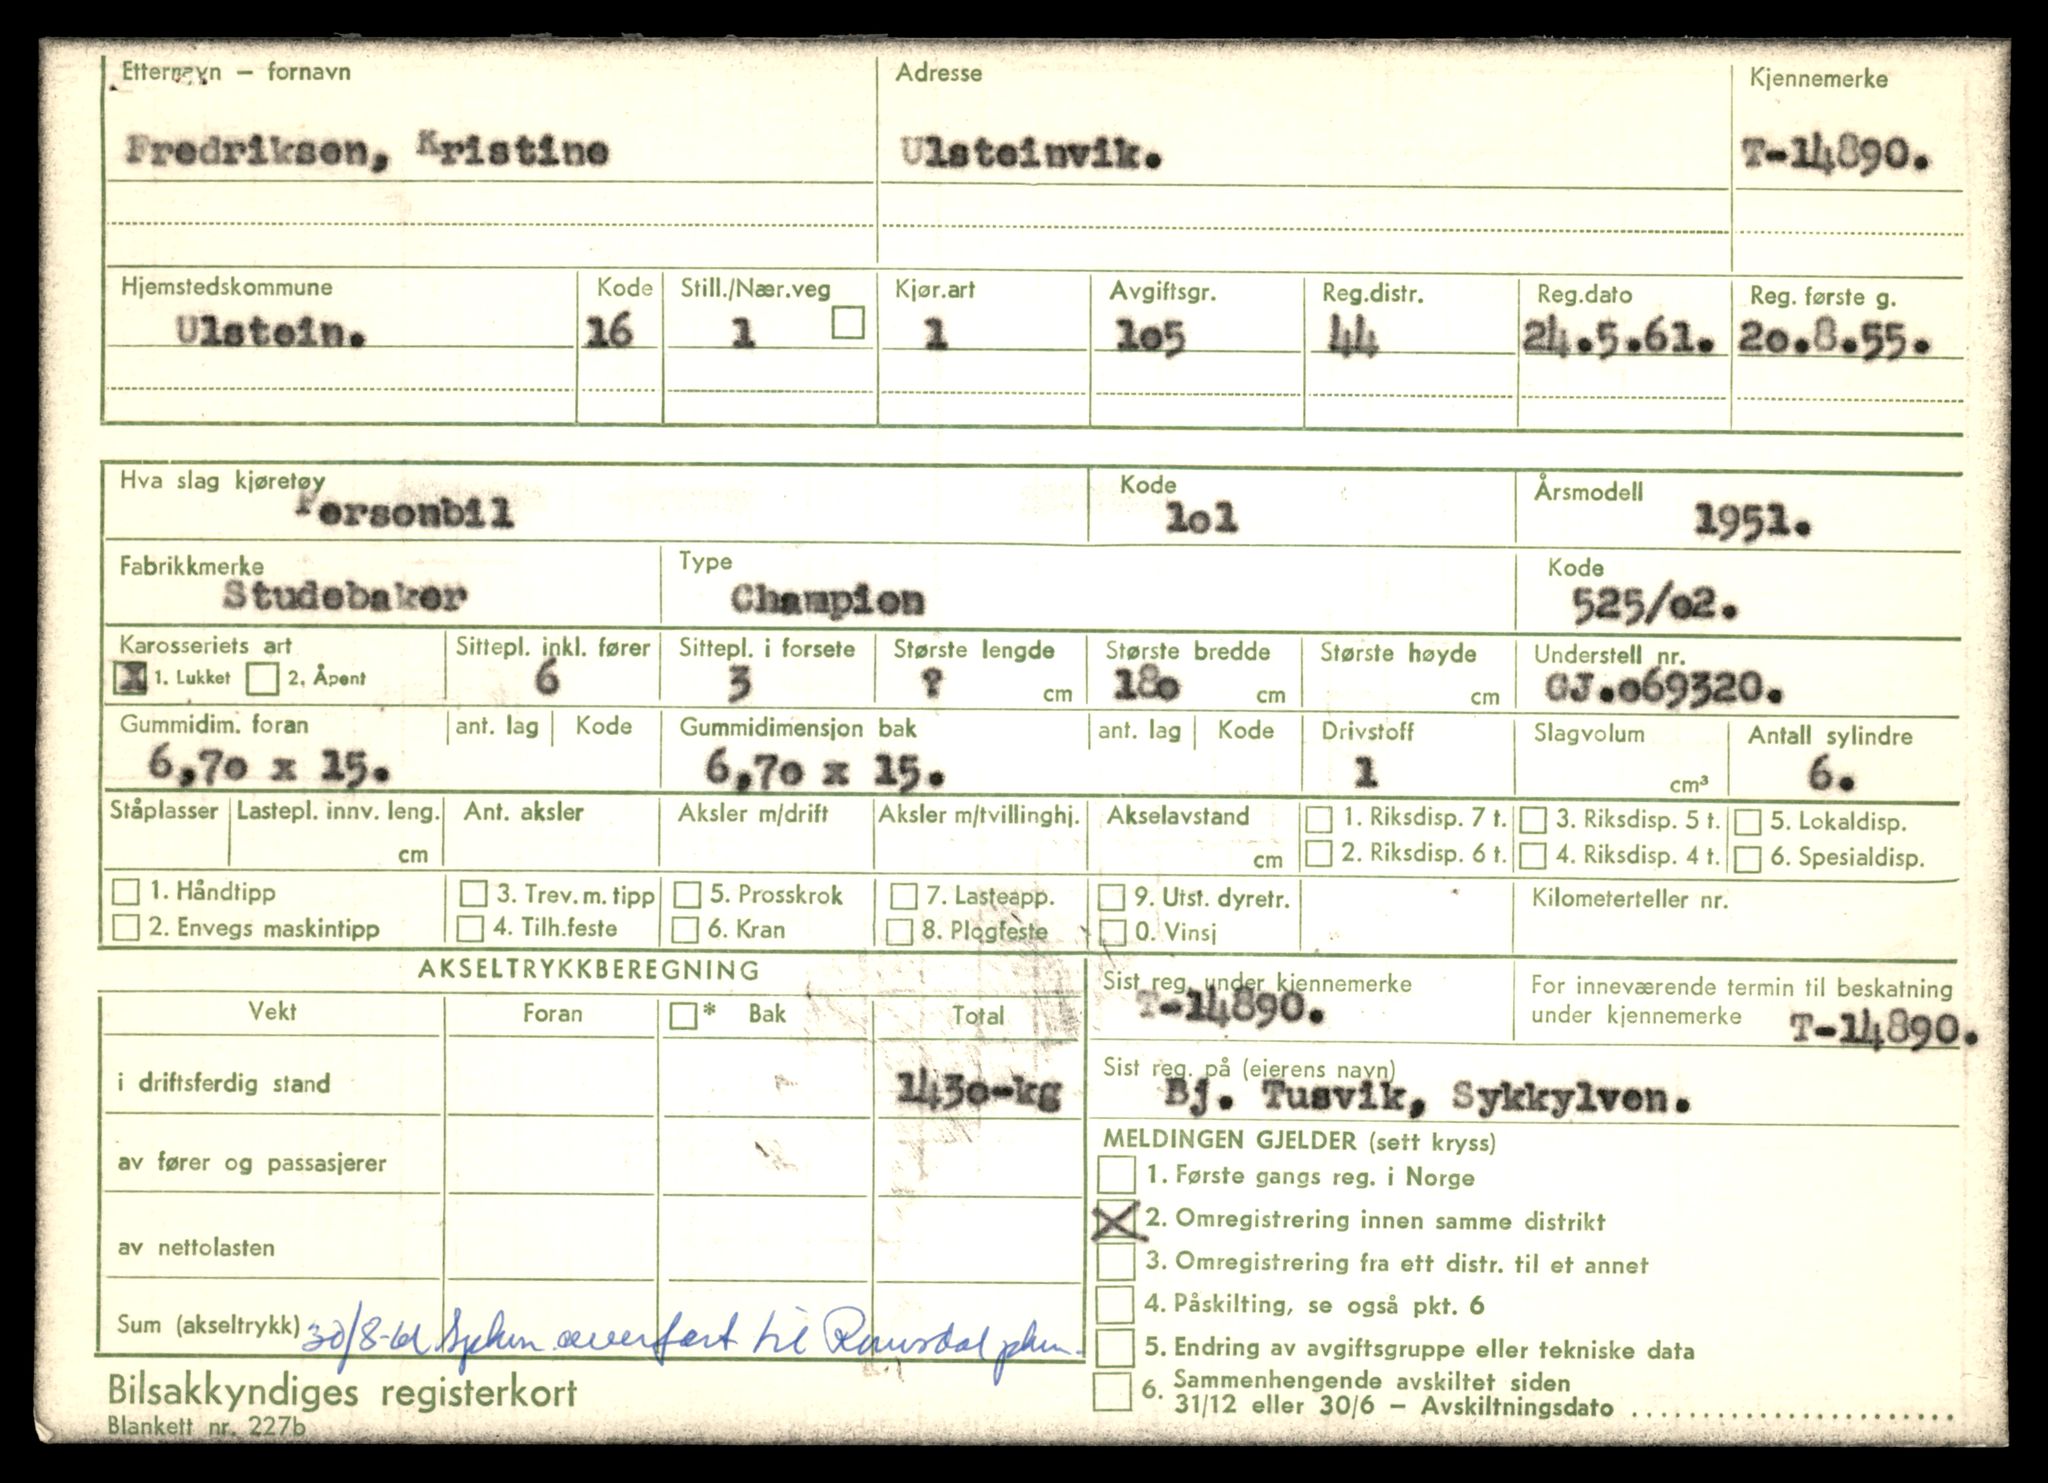 Etternavn – fornavn Adresse Kjennemerke
Fredriksen, Kristine Ulsteinvik. T-14890.
Hjemstedskommune Kode Still./Nær.veg Kjør.art Avgiftsgr. Reg.distr. Reg.dato Reg. første g.
Ulstein. 16 1 1 1o5 44 24.5.61. 2o.8.55.
Hva slag kjøretøy Kode Årsmodell
Personbil 1o1 1951.
Fabrikkmerke Type Kode
Studebaker Champion 525/o2.
Karosseriets art Sittepl. inkl. fører Sittepl. i forsete Største lengde Største bredde Største høyde Understell nr.
X 1. Lukket 2. Åpent 6 3 ? cm 18o cm cm GJ.o69320.
Gummidim. foran ant. lag Kode Gummidimensjon bak ant. lag Kode Drivstoff Slagvolum Antall sylindre
6,7o x 15. 6,7o x 15. 1 cm³ 6.
Ståplasser Lastepl. innv. leng. Ant. aksler Aksler m/drift Aksler m/tvillinghj. Akselavstand 1. Riksdisp. 7 t. 3. Riksdisp. 5 t. 5. Lokaldisp.
cm cm 2. Riksdisp. 6 t. 4. Riksdisp. 4 t. 6. Spesialdisp.
1. Håndtipp 3. Trev. m. tipp 5. Prosskrok 7. Lasteapp. 9. Utst. dyretr. Kilometerteller nr.
2. Envegs maskintipp 4. Tilh.feste 6. Kran 8. Plogfeste 0. Vinsj
AKSELTRYKKBEREGNING
Vekt Foran * Bak Total
i driftsferdig stand 143o-kg
av fører og passasjerer
av nettolasten
Sum (akseltrykk) 30/8-61 overført til Romsdal
Sist reg. under kjennemerke For inneværende termin til beskatning
T-14890. under kjennemerke T-14890.
Sist reg. på (eierens navn)
Bj. Tusvik, Sykkylven.
MELDINGEN GJELDER (sett kryss)
1. Første gangs reg. i Norge
X 2. Omregistrering innen samme distrikt
3. Omregistrering fra ett distr. til et annet
4. Påskilting, se også pkt. 6
5. Endring av avgiftsgruppe eller tekniske data
6. Sammenhengende avskiltet siden
31/12 eller 30/6 – Avskiltningsdato ........................
Bilsakkyndiges registerkort
Blankett nr. 227b